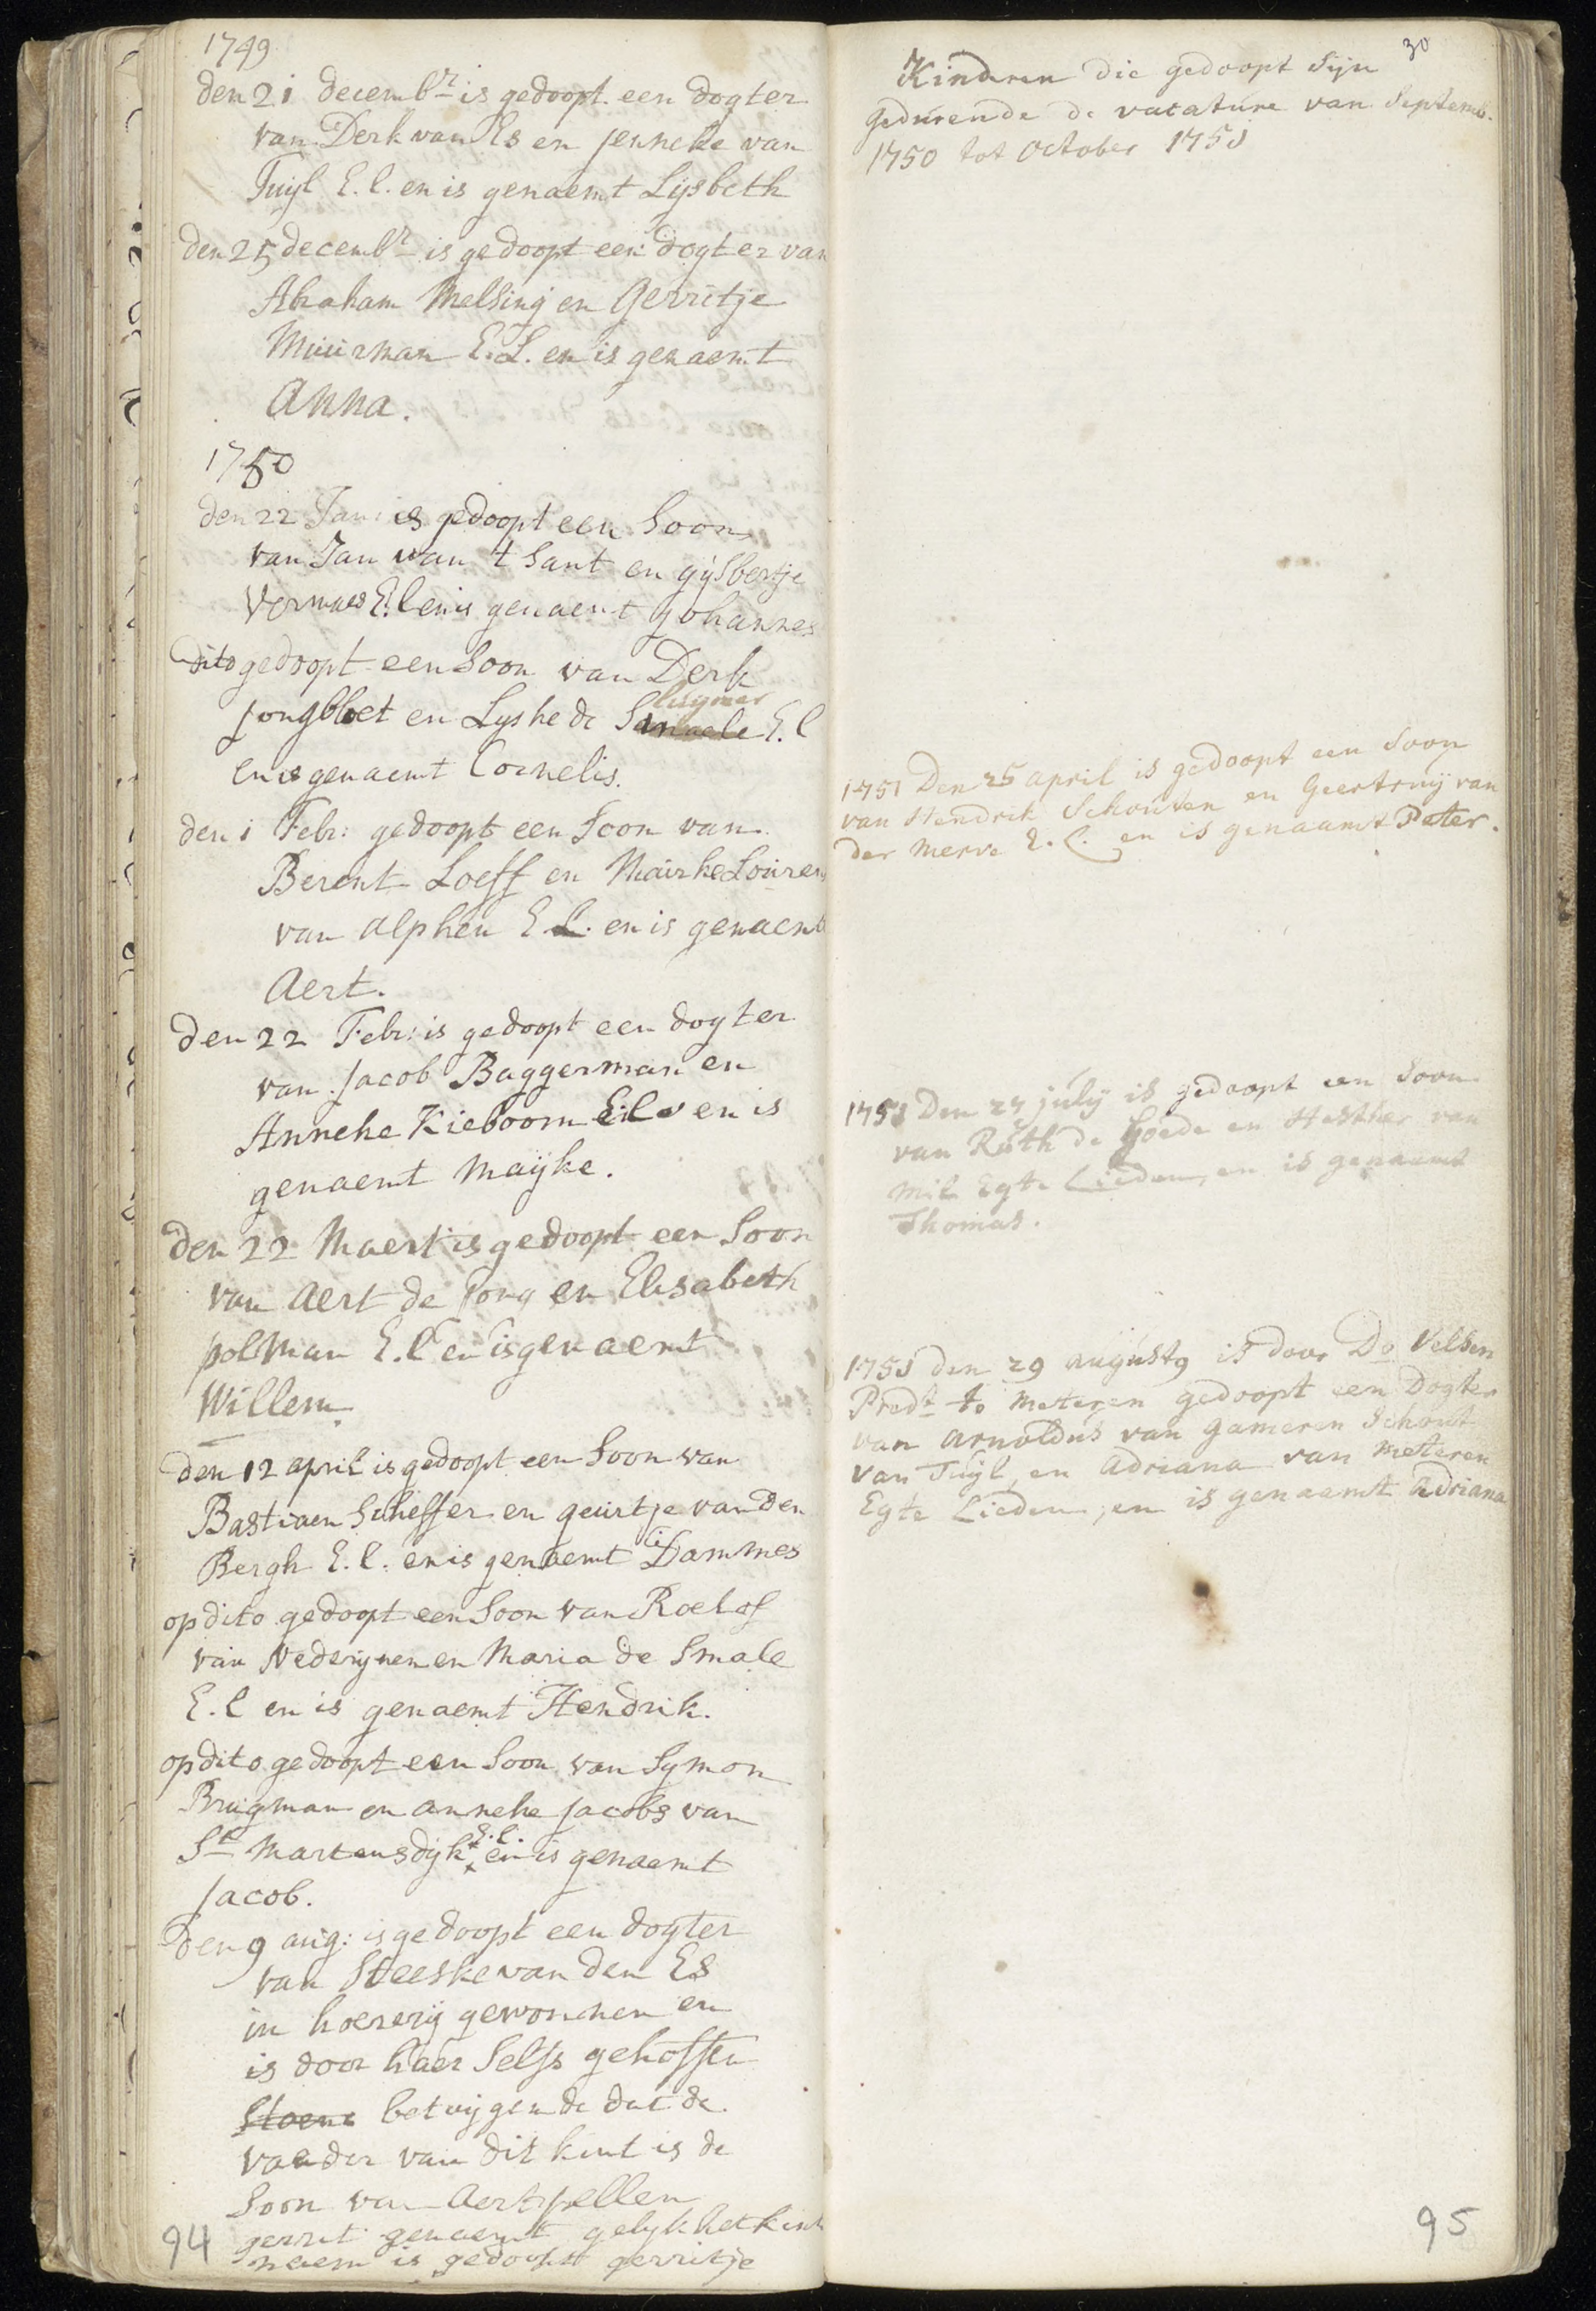 1749
den 21 decembr is gedoopt een dogter
van Derk van Es en jenneke van
Tuijl E.l. en is genaemt Lijsbeth
den 25 decembr is gedoopt een dogter van
Abraham Melsing en Gerritje
Muurman E.L. en is genaemt
Anna.
1750
den 22 Jan: is gedoopt een Soon
van Jan van 't Sant en gijsbertje
Vermaes E.l en is genaemt Johannes
dito gedoopt een Soon van Derk
lugmer
jongbloet en Lyske de E.l
en is genaemt Cornelis.
den 1 Febr: gedoopt een Soon van
Berent Loeff en Maijke Louren
van alphen E L. en is genaemt
Aert.
den 22 Febr: is gedoopt een dogter
van Jacob Baggerman en
Anneke Kieboom E.l. en is
genaemt Maijke.
den 22 Maert is gedoopt een Soon
van Aert de Jong en Elisabeth
polman E.l en is genaemt
Willem.
den 12 april is gedoopt een Soon van
Bastiaen Scheffer en geurtje van den
Bergh E.l. en is genaemt Dammes
op dito gedoopt een Soon van Roelof
van Nederijnen en Maria de Smale
E.l en is genaemt Hendrik.
op dito gedoopt een Soon van Symon
Brugman en anneke Jacobs van
E.l.
St Martensdijk en is genaemt
Jacob.
den 9 aug: is gedoopt een dogter
van Steeske van den Es
in hoererij gewonnen en
is door haer Selfs geheffen
betuijgende dat de
vaeder van dit kint is de
Soon van Aert pellen
gerrit genaemt gelijk het kint
naem is gedoopt gerritje
94
30
Kinderen die gedoopt Sijn
gedurende de vacature van Septemb.
1750 tot October 1751
1751 Den 25 april is gedoopt een Soon
van Hendrik Schouten en Geertruij van
der Merve E.l. en is genaamt Peter.
1751 Den 25 julij is gedoopt een Soon
van Ruth de Goede en Hesther van
Mil Egte Lieden, en is genaemt
Thomas.
1751 den 29 augusty is door Do Velsen
Predt te Meteren gedoopt een Dogter
van Arnoldus van Gameren Schout
van Tuijl, en Adriana van Meteren
Egte Lieden, en is genaemt Adriana
95